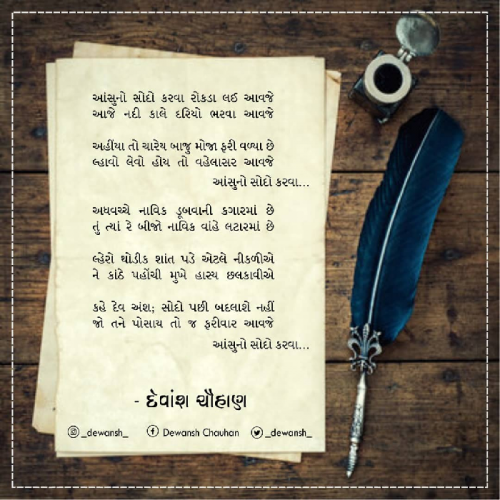 આંસુનો સોદો કરવા રોકડા લઈ આવજે
આજે નદી કાલે દરિયો ભરવા આવજે
અહીંયા તો ચારેય બાજુ મોજા ફરી વળ્યા છે
લ્હાવો લેવો હોય તો વહેલાસર આવજે
આંસુનો સોદો કરવા...
અધવચ્ચે નાવિક ડૂબવાની કગારમાં છે
તું ત્યાં રે બીજો નાવિક વાંહે લટારમાં છે
લ્હેરો થોડીક શાંત પડે એટલે નીકળીએ
ને કાંઠે પહોંચી મુખે હાસ્ય છલકાવીએ
કહે દેવ અંશ; સોદો પછી બદલાશે નહીં
જો તને પોસાય તો જ ફરીવાર આવજે
આંસુનો સોદો કરવા...
- દેવાંશ ચૌહાણ
_dewansh_ Dewansh Chauhan _dewansh_